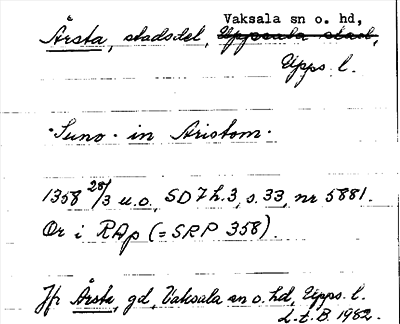 Vaksala sn o. hd,
Årsta, stadsdel, Uppsala stad,
Upps. l.
"Suno" in Aristom.
1358 28/3 u.o. SD 7 h.3, s. 33, nr 5881.
Or i RAp (= SRP 358).
Jfr Årsta, gd, Vaksala sn o. hd, Upps. l.
L.t.B. 1982.